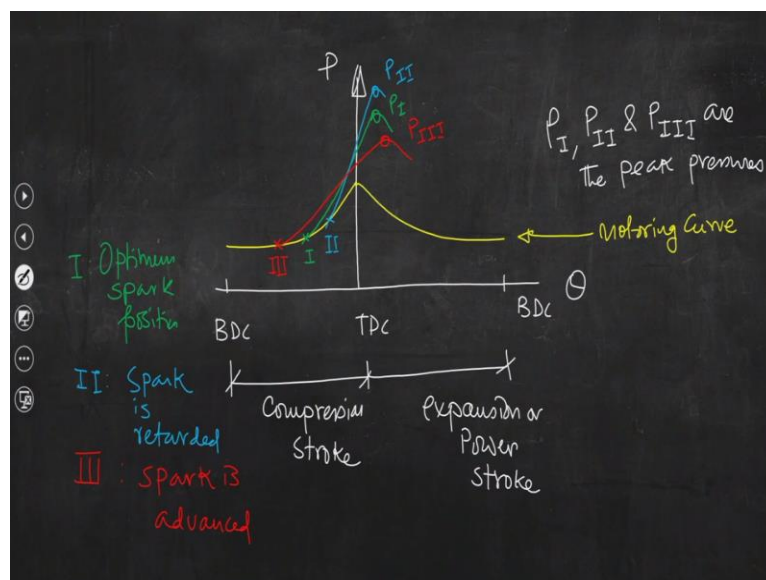 P
P_II
P_I
P_III
P_I, P_II & P_III are
the peak pressures
Motoring Curve
III
I
II
θ
BDC
TDC
BDC
I: Optimum
spark
position
II: Spark
is
retarded
III: Spark is
advanced
Compression
Stroke
Expansion or
Power
Stroke